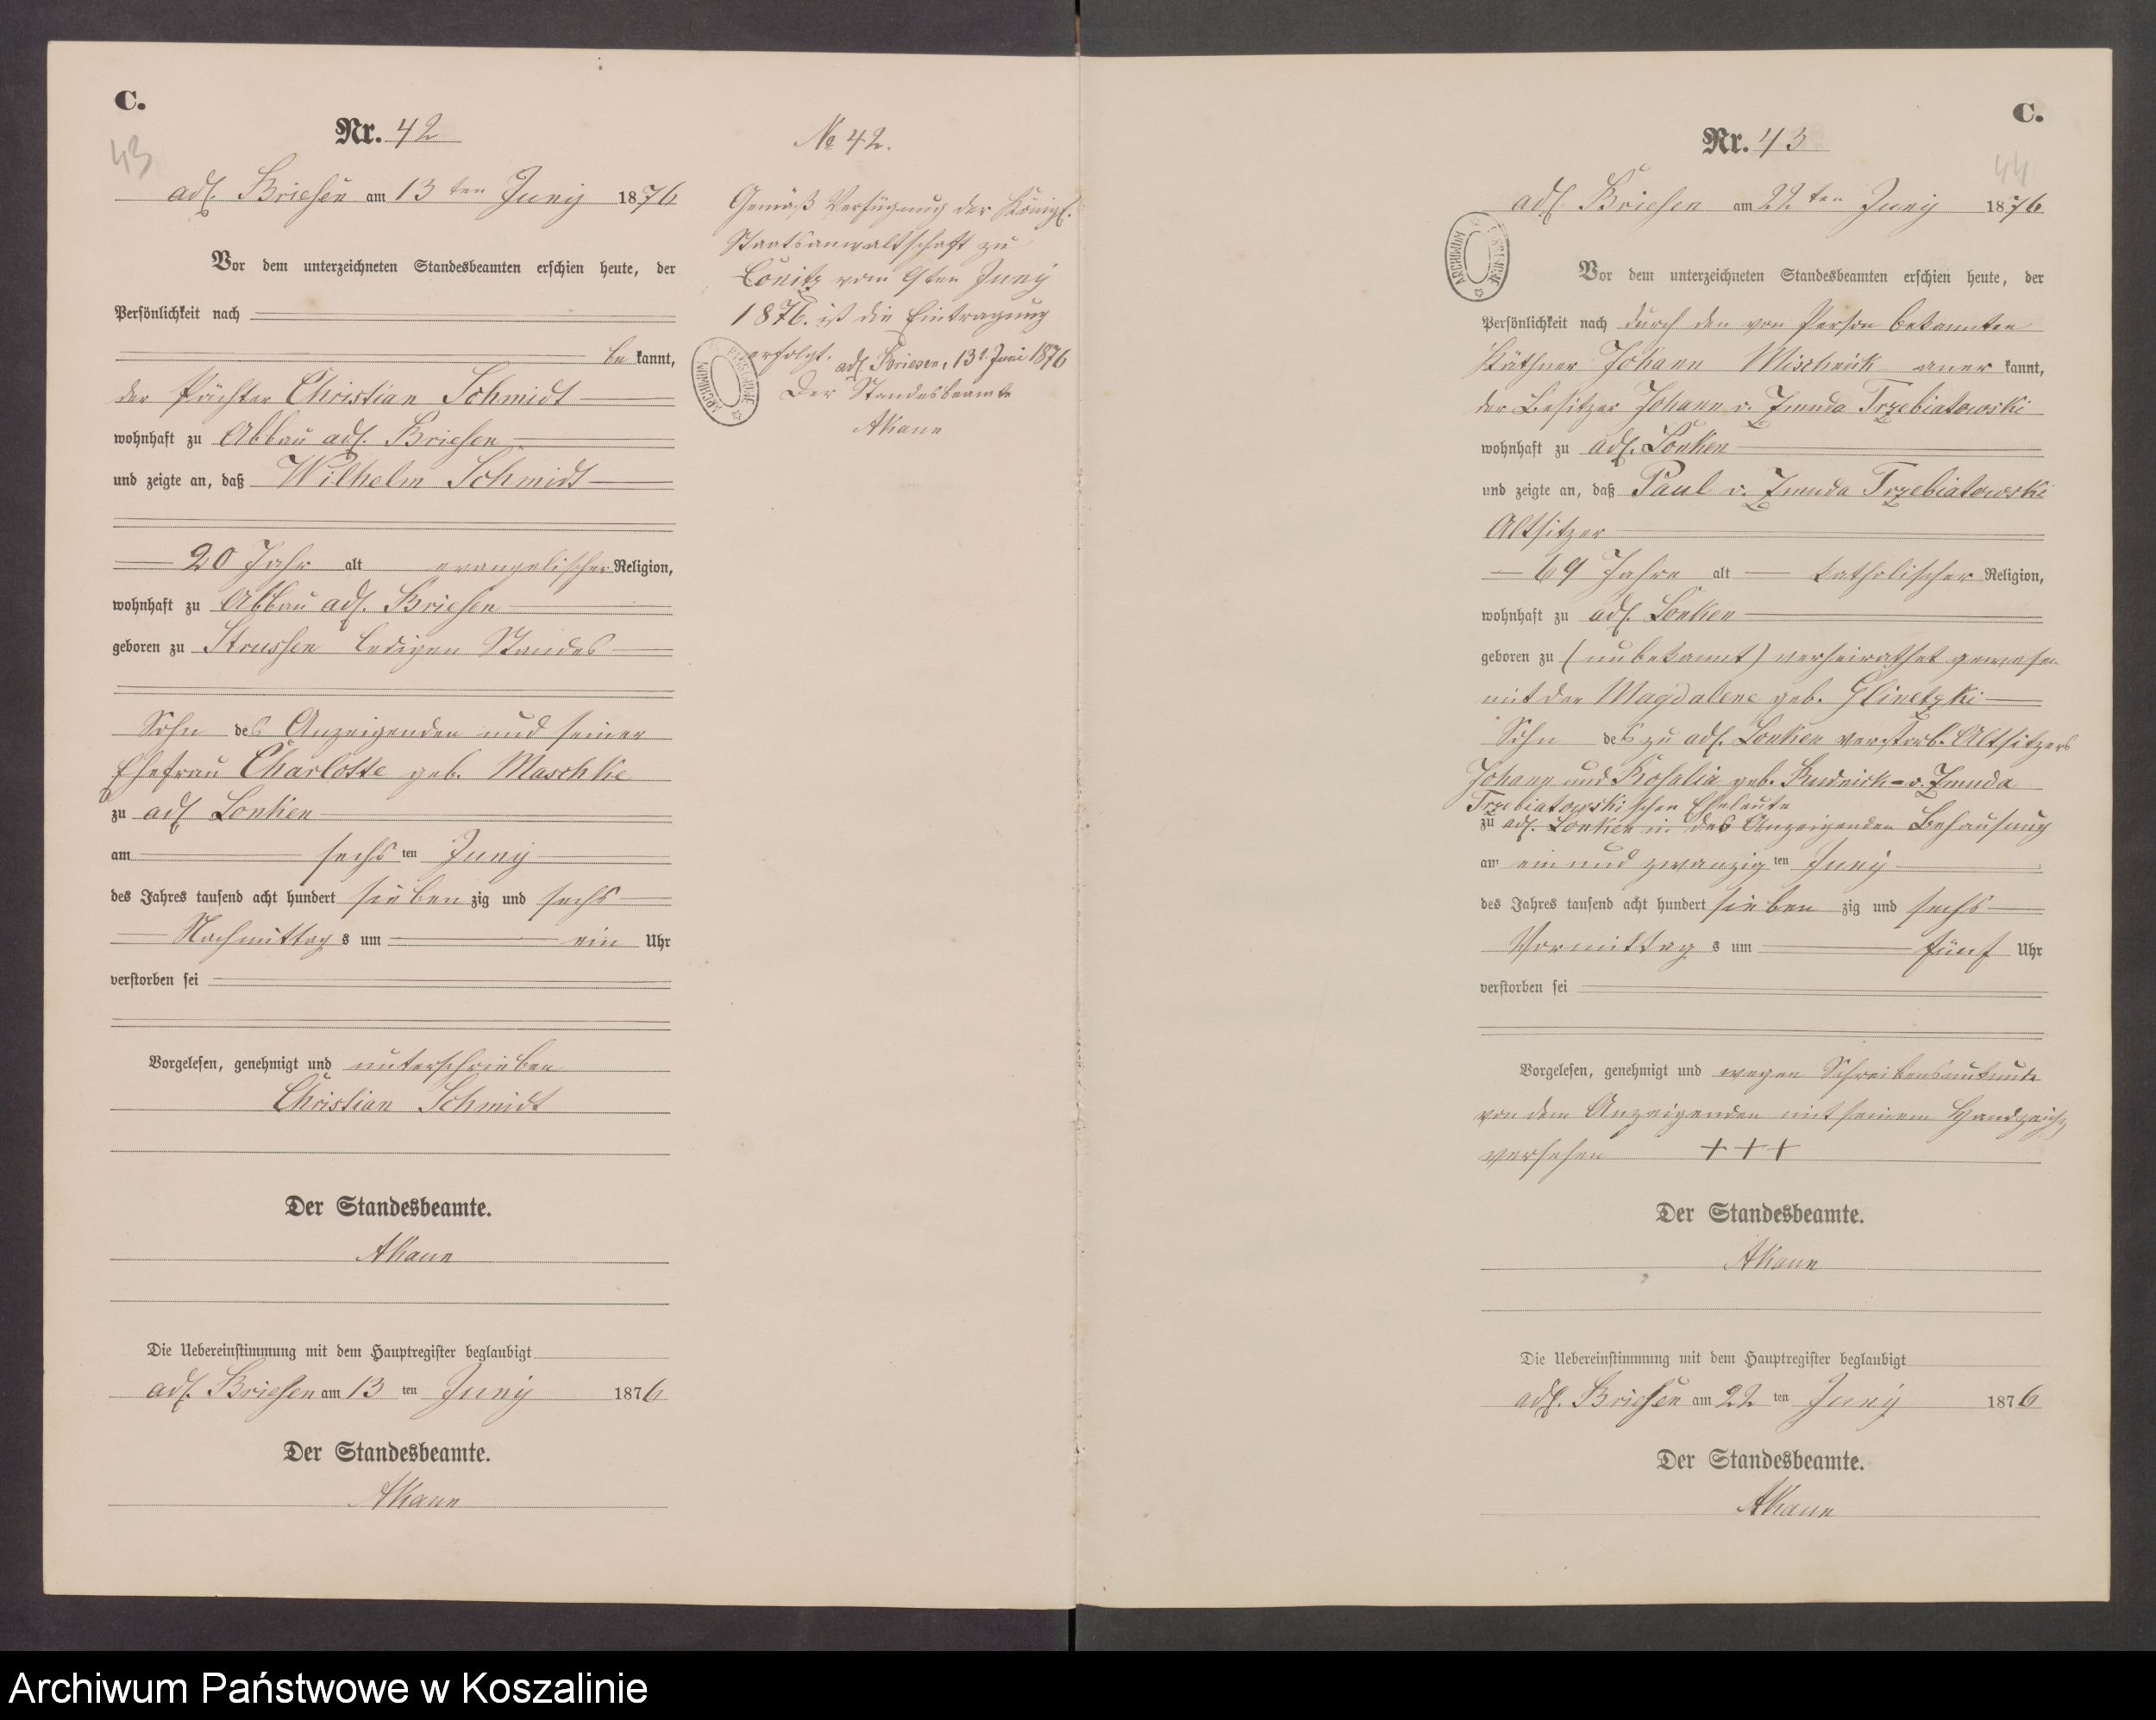 C.
43
Nr. 42
adl. Briesen am 13 ten Juny 1876
Vor dem unterzeichneten Standesbeamten erschien heute, der
Persönlichkeit nach
be kannt,
der Pächter Christian Schmidt
wohnhaft zu Abbau adl. Briesen
und zeigte an, daß Wilhelm Schmidt
20 Jahr alt evangelischer Religion,
wohnhaft zu Abbau adl. Briesen
geboren zu Strussen ledigen Standes
Sohn des Anzeigenden und seiner
Ehefrau Charlotte geb. Maschke
zu adl Lonken
am sechs ten Juny
des Jahres tausend acht hundert sieben zig und sechs
Nachmittag s um ein Uhr
verstorben sei
Vorgelesen, genehmigt und unterschrieben
Christian Schmidt
Der Standesbeamte.
AKaun
Die Uebereinstimmung mit dem Hauptregister beglaubigt
adl. Briesen am 13 ten Juny 1876
Der Standesbeamte.
AKaun
No 42.
Gemäß Verfügung der Königl.
Staatsanwaltschaft zu
Conitz vom 9ten Juny
1876. ist die Eintragung
erfolgt. adl. Briesen, 13t. Juni 1876
Der Standesbeamte
AKaun
ARCHIWUM PAŃSTWOWE
C.
44
Nr. 43
adl Briesen am 22 ten Juny 1876
ARCHIWUM PAŃSTWOWE
Vor dem unterzeichneten Standesbeamten erschien heute, der
Persönlichkeit nach durch den von Person bekannten
Käthner Johann Mischnick aner kannt,
der Besitzer Johann v. Zmuda Trzebiatowski
wohnhaft zu adl. Lonken
und zeigte an, daß Paul v. Zmuda Trzebiatowski
Altsitzer
69 Jahre alt katholischer Religion,
wohnhaft zu adl. Lonken
geboren zu (unbekannt) verheirathet gewesen
mit der Magdalene geb. Glinetzki
Sohn des zu adl. Lonken verstorb. Altsitzers
Johann und Rosalia geb. Rudnick - v. Zmuda
Trzebiatowski schen Eheleute
zu adl. Lonken in des Anzeigenden Behausung
am ein und zwanzig ten Juny
des Jahres tausend acht hundert sieben zig und sechs
Vormittag s um fünf Uhr
verstorben sei
Vorgelesen, genehmigt und wegen Schreibensunkunde
von dem Anzeigenden mit seinem Handzeichen
versehen +++
Der Standesbeamte.
AKaun
Die Uebereinstimmung mit dem Hauptregister beglaubigt
adl. Briesen am 22 ten Juny 1876
Der Standesbeamte.
AKaun
Archiwum Państwowe w Koszalinie